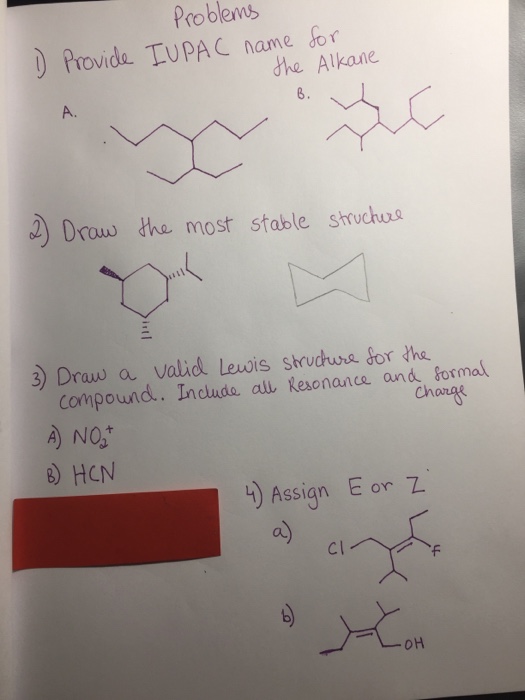 Problems
1) Provide IUPAC name for
the Alkane
A.
B.
2) Draw the most stable structure
3) Draw a valid Lewis structure for the
compound. Include all Resonance and formal
charge
A) NO₂⁺
B) HCN
4) Assign E or Z
a)
Cl
F
b)
OH